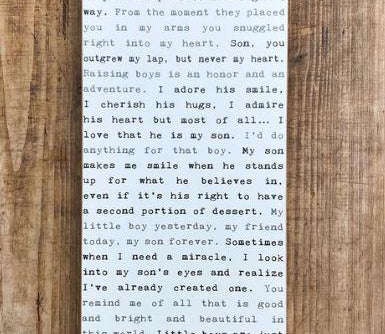 way. From the moment they placed
you in my arms you snuggled
right into my heart. Son, you
outgrew my lap, but never my heart.
Raising boys is an honor and an
adventure. I adore his smile,
I cherish his hugs, I admire
his heart but most of all... I
love that he is my son. I'd do
anything for that boy. My son
makes me smile when he stands
up for what he believes in,
even if it's his right to have
a second portion of dessert. My
little boy yesterday, my friend
today, my son forever. Sometimes
when I need a miracle, I look
into my son's eyes and realize
I've already created one. You
remind me of all that is good
and bright and beautiful in
this world. Little boys are just